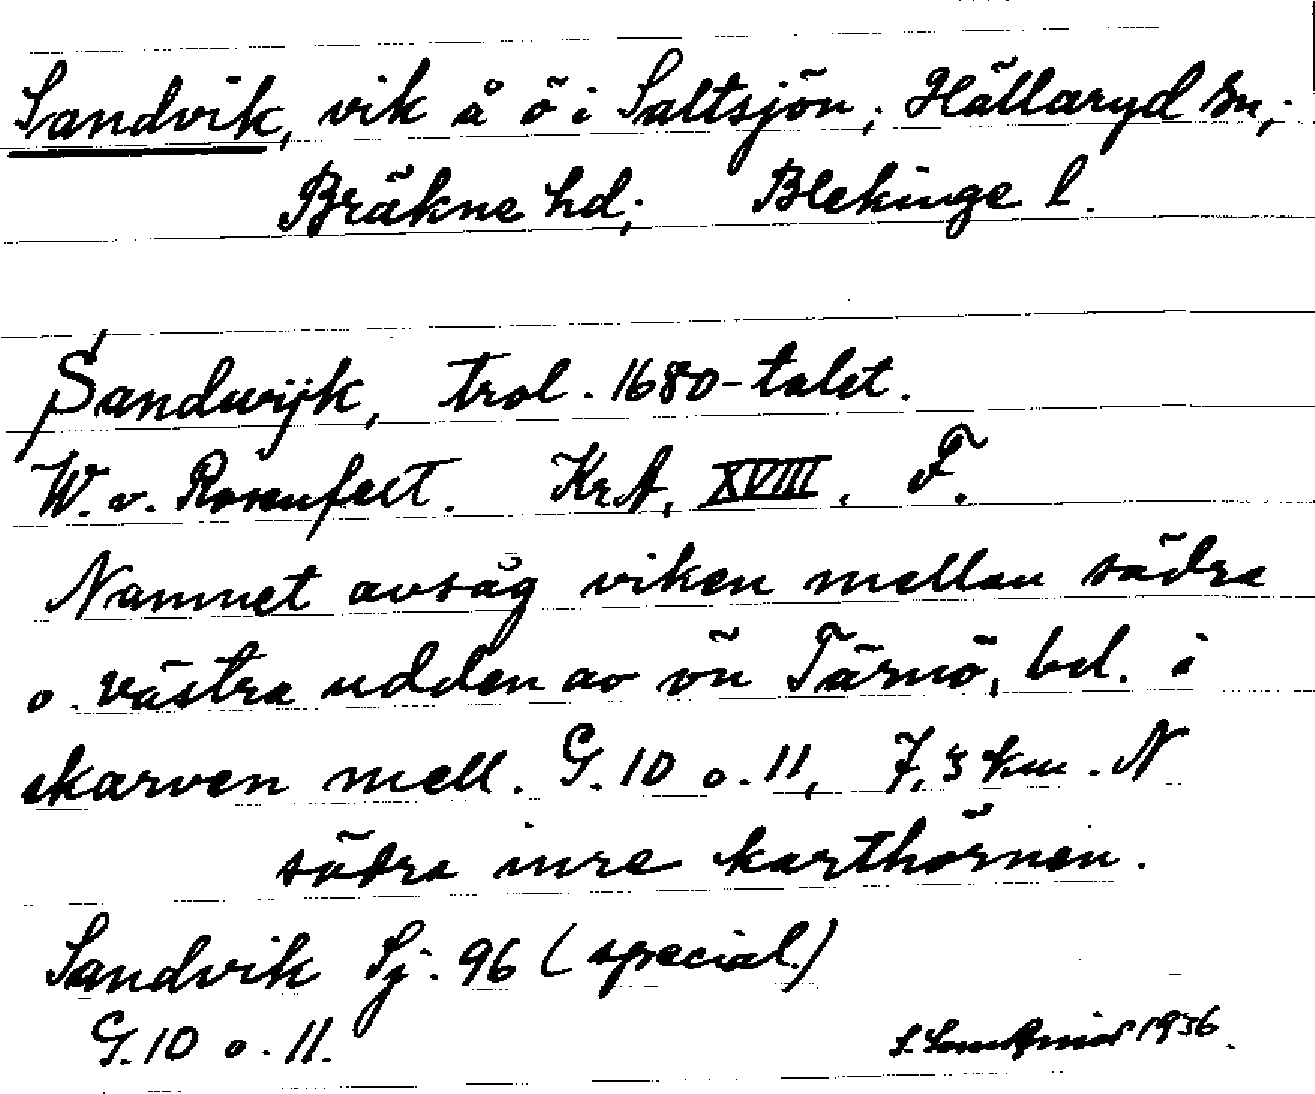 Sandvik, vik å ö i Saltsjön; Hällaryd sn;
Bräkne hd; Blekinge l.
Sandwijk, trol. 1680-talet.
W. v. Rosenfelt. KrA, XVIII. F.
Namnet avsåg viken mellan södra
o. västra udden av ön Tärnö, bel. i
skarven mell. G. 10 o. 11, 7,3 km. N
södra inre karthörnen.
Sandvik Sj. 96 (special.)
G. 10 o. 11.
1936.